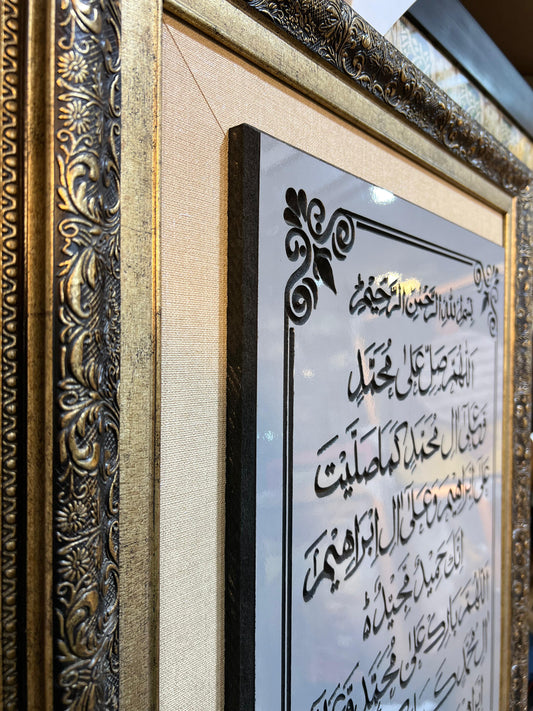 بِسْمِ اللهِ الرَّحْمٰنِ الرَّحِيْمِ
اَللّٰهُمَّ صَلِّ عَلٰى مُحَمَّدٍ
وَّعَلٰٓى اٰلِ مُحَمَّدٍ كَمَا صَلَّيْتَ
عَلٰٓى اِبْرَاهِيْمَ وَعَلٰٓى اٰلِ اِبْرَاهِيْمَ
اِنَّكَ حَمِيْدٌ مَّجِيْدٌ
اَللّٰهُمَّ بَارِكْ عَلٰى مُحَمَّدٍ وَّعَلٰٓى
اٰلِ مُحَمَّدٍ كَمَا بَارَكْتَ